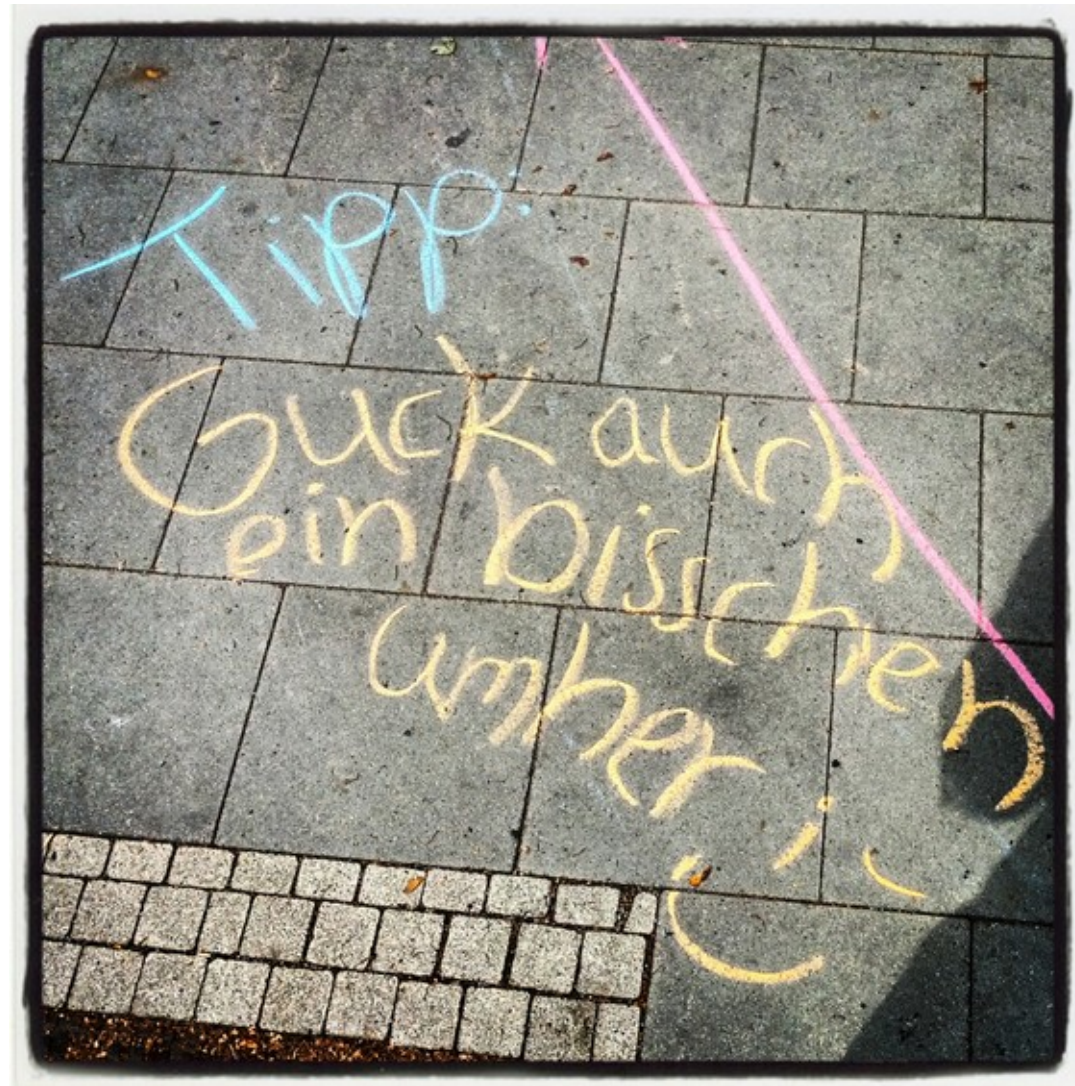 Tipp:
Guck auch
ein bisschen
umher